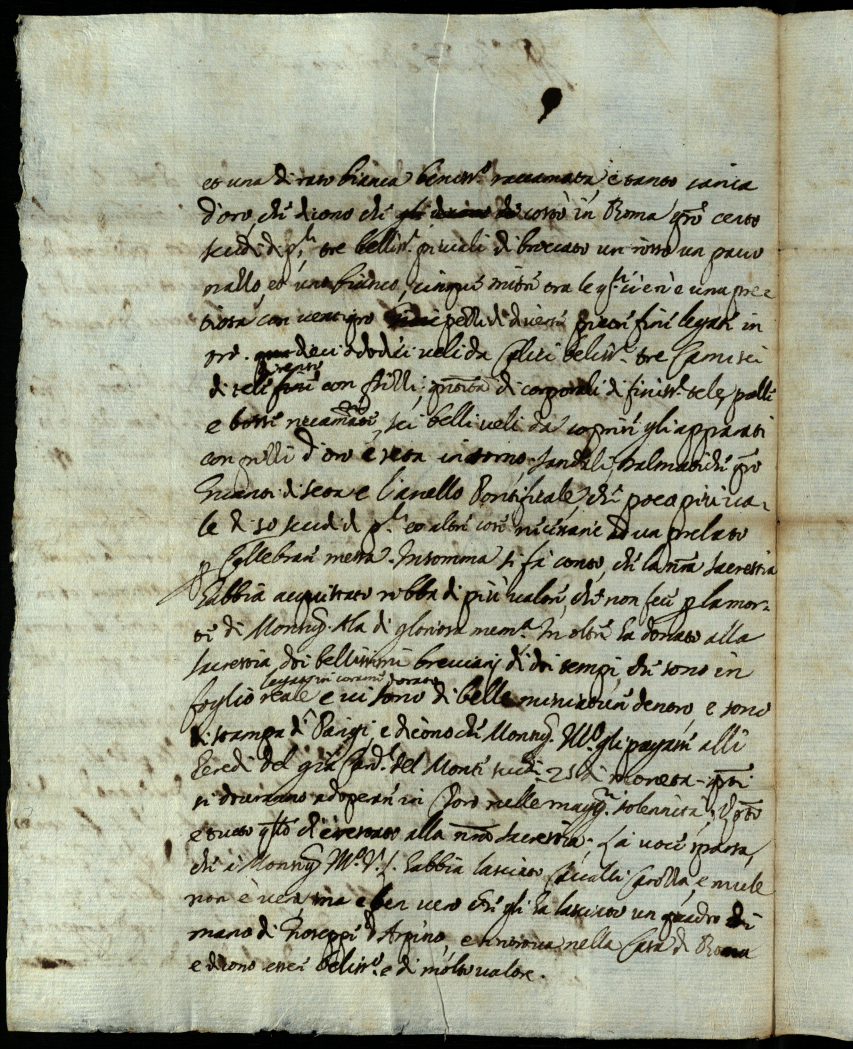 et una di raso bianca beniss.º raccamata, e tanto carica
d'oro, che dicono che costò in Roma p̄ cento
scudi di tre belliss. piviali di broccato un rosso un pavo
nazzo et uno bianco, cinque mitre tra le q.li vi en'è una pre
tiosa con ventiquo pezzi di diverse pietre fini legati in
oro. dieci o dodeci veli da Calici beliss. tre Camisci
di tele fini con frilli, quantità di corporali di finiss. tele, palle
e borse recamate, sei belli veli da coprire gli apparati
con pizzi d'oro e seta intorno, sandali, dalmatiche
Guanti di seta e l'anello Pontificale, che poco più va-
le di 50 scudi di et altre cose necessarie ad un prelato
p Cellebrare messa. Insomma si fà conto, che la nr̄a sacrestia
habbia acquistato robba di più valore, che non fece p la mor-
te di Mons.g di gloriosa mem.a In oltre ha donato alla
sacrestia doi bellissimi breviarij di doi tempi, che sono in
foglio reale legati in corame dorato e vi sono di belle miniature dentro, e sono
di stampa di Parigi, e dicono che Mons.g M.º gli pagasse alli
heredi del già Card.l del Monte scudi 25 di moneta
si doveranno adoperare in Choro nelle magg.ri solennità,
e tutto q.to che è restato alla nr̄a sacrestia. La voce sparsa,
che a Mons.g M.º V.S. habbia lasciato Cavalli Carozza, e mule
non è vera, ma è ben vero che gli ha lasciato un quadro di
mano di Gioseppe d'Arpino, e si ritrova nella Casa di Roma
e dicono esser beliss.º e di molto valore.